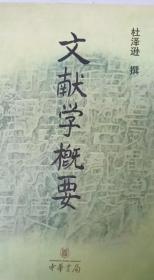 杜泽逊 撰
文献学概要
中华书局